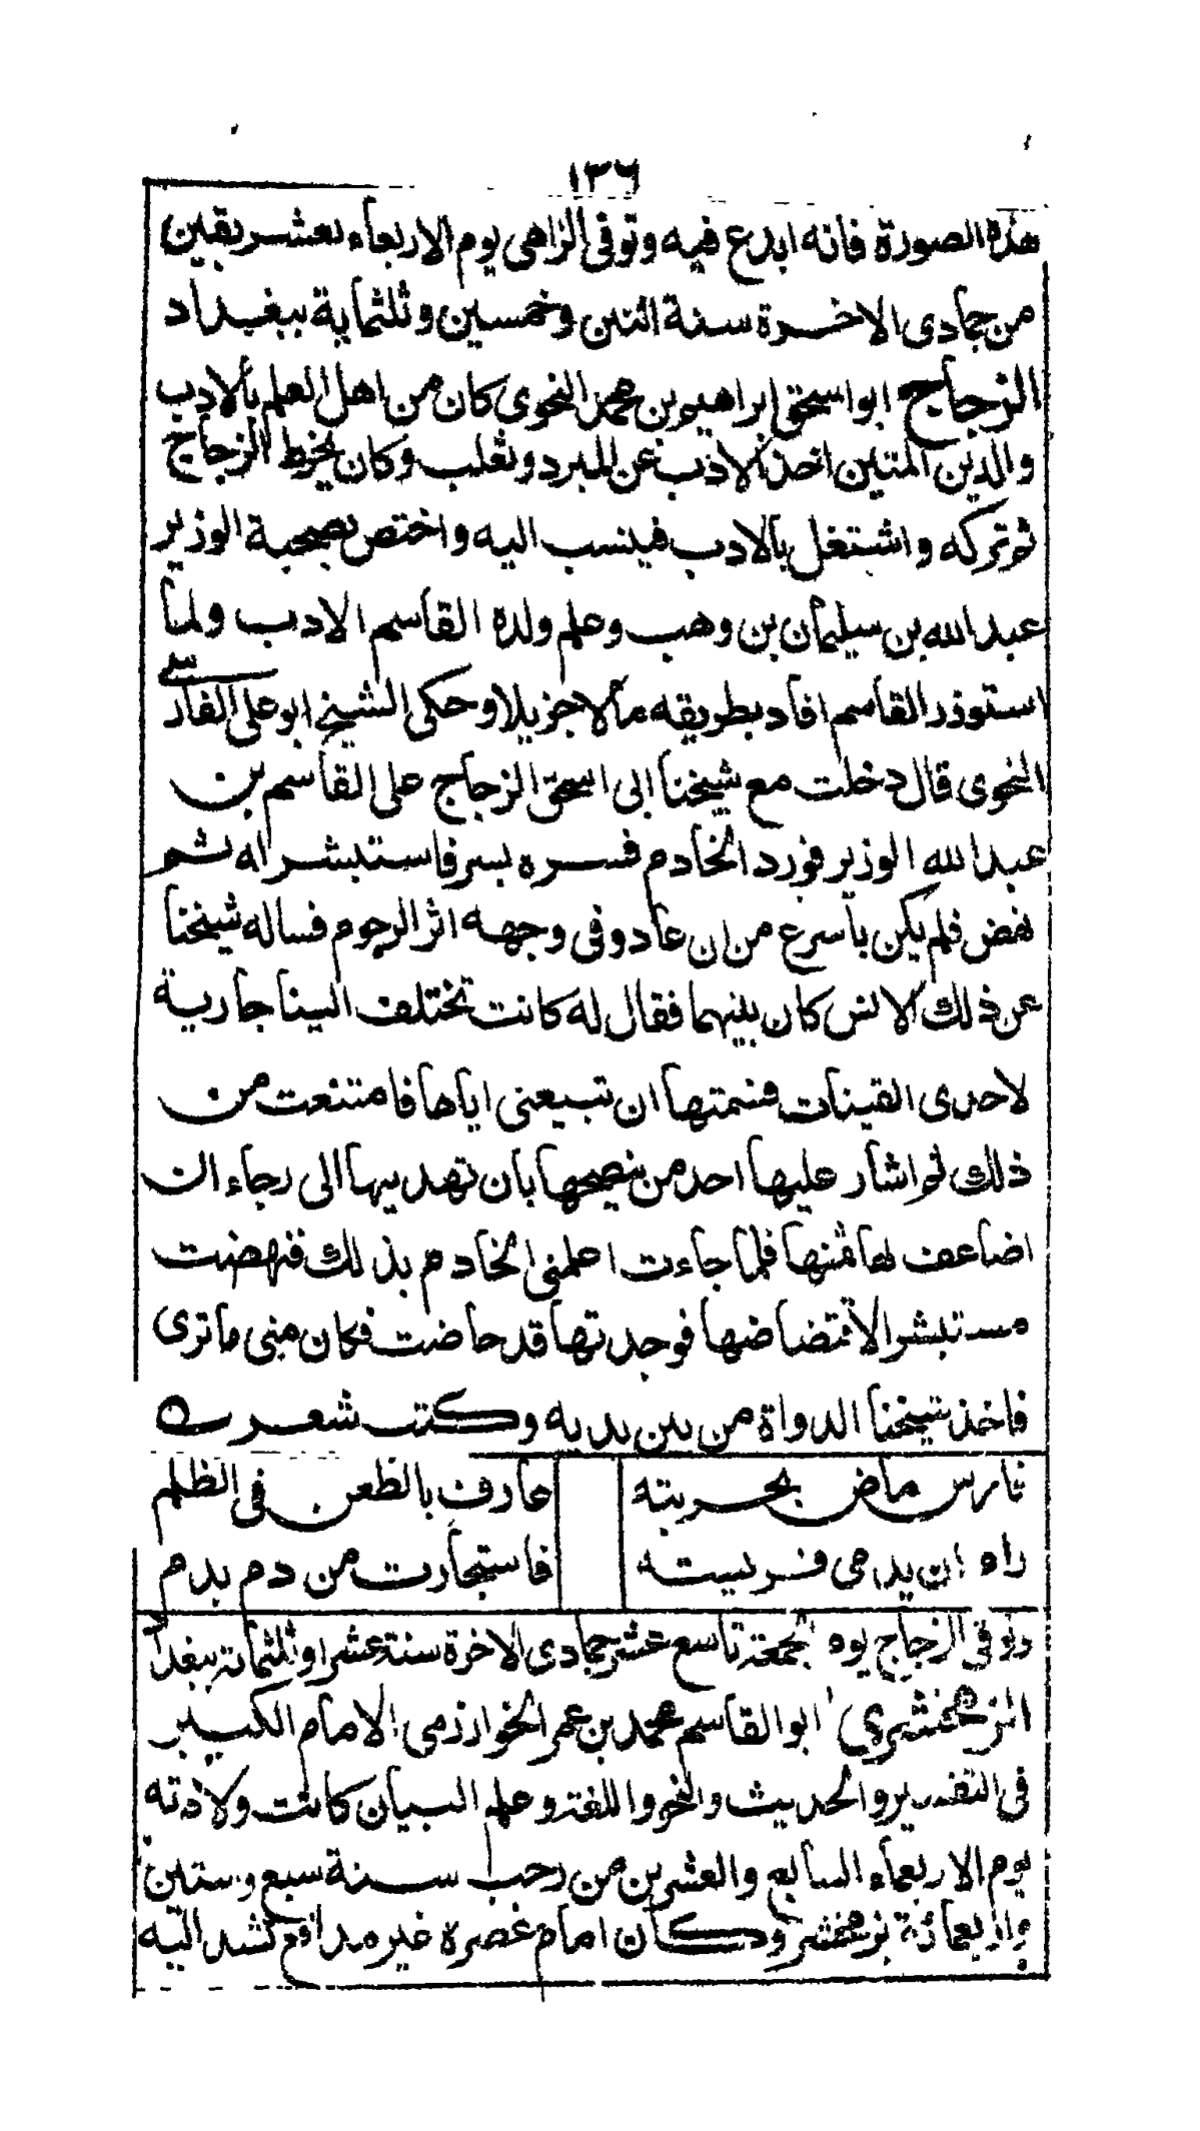 ١٣٦
هذه الصورة فانه ابدع فيه وتوفى الزاهى يوم الاربعاء لعشر بقين
من جمادى الاخرة سنة اثنين وخمسين وثلثماية ببغداد
الزجاج ابو اسحق ابراهيم بن محمد النحوى كان من اهل العلم بالادب
والدين المتين اخذ الادب عن المبرد وثعلب وكان يخرط الزجاج
ثم تركه واشتغل بالادب فينسب اليه واختص بصحبة الوزير
عبدالله بن سليمان بن وهب وعلم ولده القاسم الادب ولما
استوزر القاسم افاد بطريقه مالا جزيلا وحكى الشيخ ابو على الفارسى
النحوى قال دخلت مع شيخنا ابى اسحق الزجاج على القاسم بن
عبدالله الوزير فورد الخادم فسره بسر فاستبشر له ثم
نهض فلم يكن باسرع من ان عاد وفى وجهه اثر الوجوم فساله شيخنا
عن ذلك لانس كان بينهما فقال له كانت تختلف الينا جارية
لاحدى القينات فسمتها ان تبيعنى اياها فامتنعت من
ذلك ثم اشار عليها احد من ينصحها بان تهديها الى رجاء ان
اضاعف لها ثمنها فلما جاءت اعلمنى الخادم بذلك فنهضت
مستبشرا لافتضاضها فوجدتها قد حاضت فكان منى ما ترى
فاخذ شيخنا الدواة من بين يديه وكتب شعر
فارس ماض بحربته عارف بالطعن فى الظلم
رام ان يدمى فريسته فاستجارت من دم بدم
وتوفى الزجاج يوم الجمعة تاسع عشر جمادى الاخرة سنة عشر وثلثمائة ببغداد
الزمخشري ابو القاسم محمد بن عمر الخوارزمى الامام الكبير
فى التفسير والحديث والنحو واللغة وعلم البيان كانت ولادته
يوم الاربعاء السابع والعشرين من رجب سنة سبع وستين
واربعمائة بزمخشر وكان امام عصره غير مدافع تشد اليه